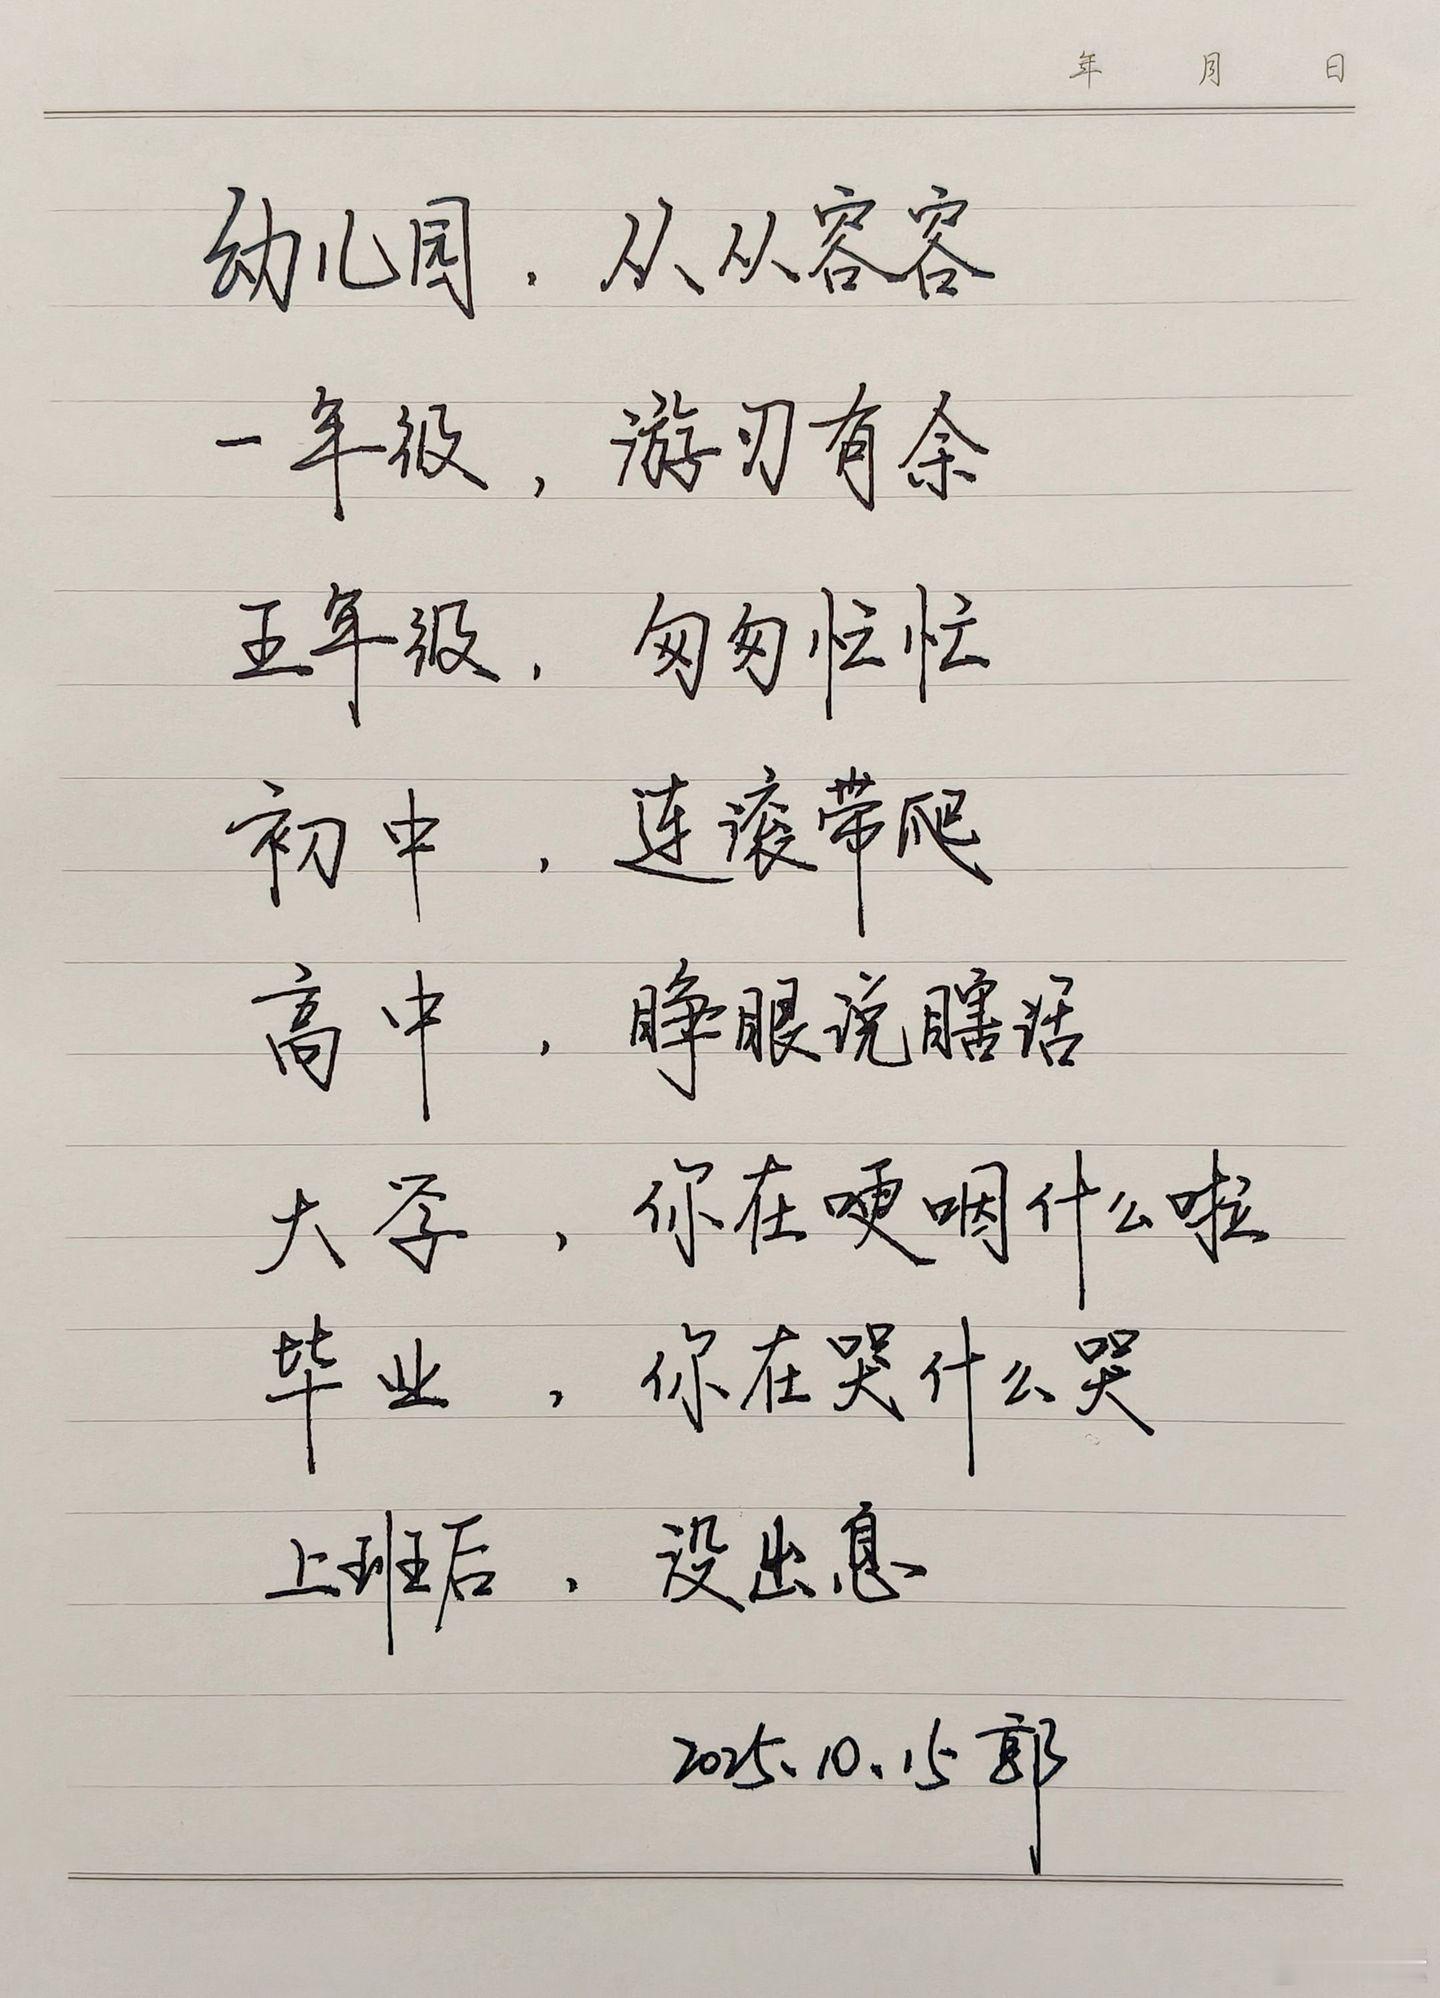 年 月 日
幼儿园，从从容容
一年级，游刃有余
五年级，匆匆忙忙
初中，连滚带爬
高中，睁眼说瞎话
大学，你在哽咽什么啦
毕业，你在哭什么哭
上班后，没出息
2025.10.15 郭